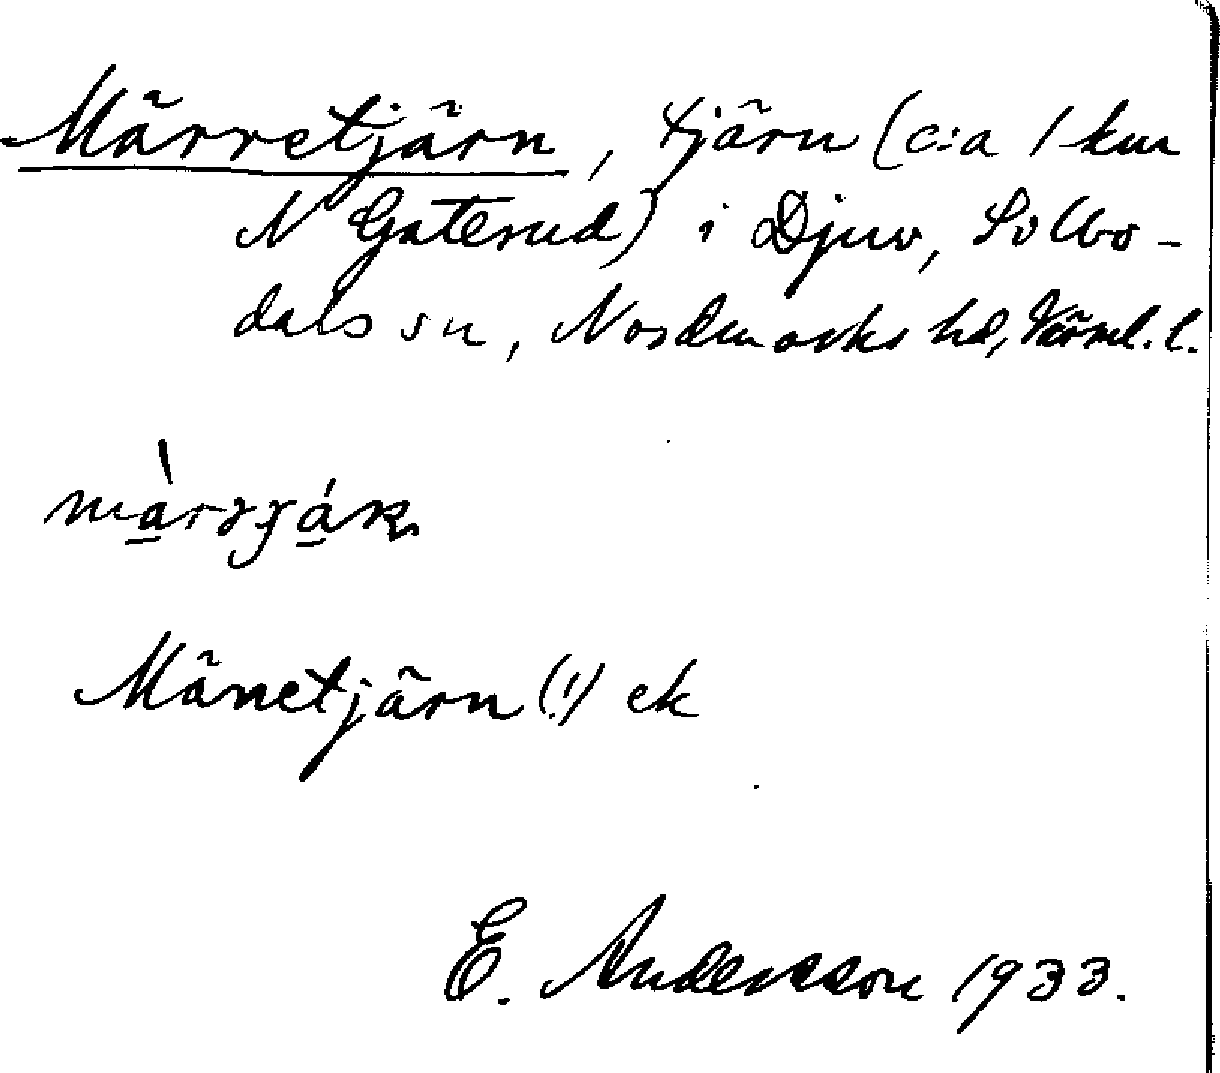 Märretjärn, tjärn (c:a 1 km
N Gaterud) i Djuv, Sillbo-
dals sn, Nordmarks hd, Värml. l.
Mänetjärn (!) ek
E. Andersson 1933.